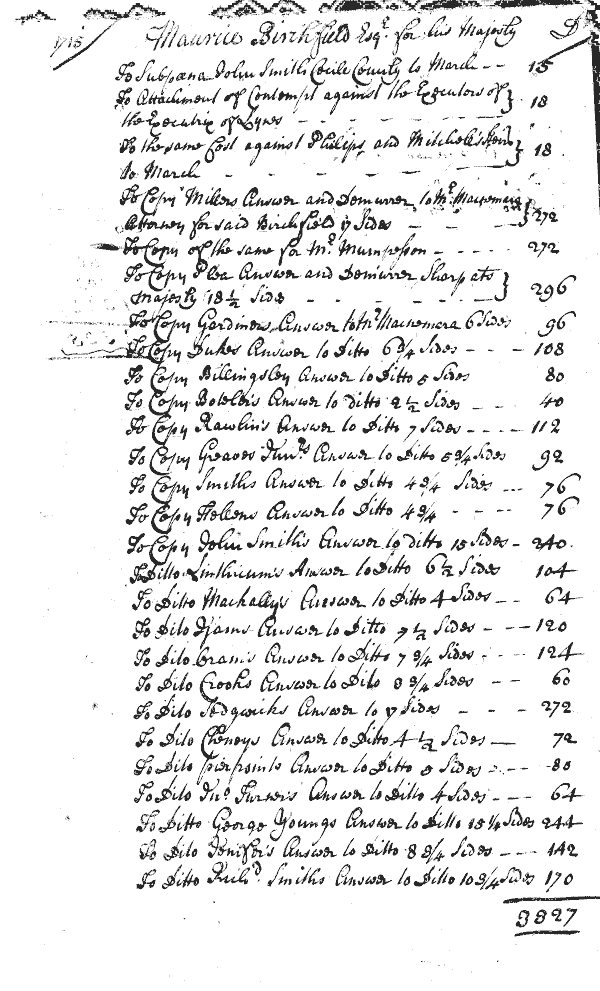 1715 Maurice Birchfield Esqr. for his Majesty Dr
To Subpæna John Smith Cecile County to March - - 15
To Attachment of Contempt against the Executors of } 18
the Executrix of Lynes - - - - -
To the same Cost against Philips and Mitchell's } 18
to March - - - - -
To Copy Millers Answer and Demurrer to Mr. Macnemara } 272
Attorney for said Birchfield 17 Sides - - -
To Copy of the same for Mr. Mumpesson - - - - 272
To Copy Plea Answer and Demurrer Sharp ats } 296
Majesty 18 1/2 Side - - - - -
To Copy Gardiners Answer to Mr Macnemara 6 Sides 96
To Copy Dukes Answer to Ditto 6 3/4 Sides - - - 108
To Copy Billingsley Answer to Ditto 5 Sides 80
To Copy Botelers Answer to ditto 2 1/2 Sides - - - 40
To Copy Rawlin's Answer to Ditto 7 Sides - - - - 112
To Copy Greaves Answer to Ditto 5 3/4 Sides 92
To Copy Smiths Answer to Ditto 4 3/4 Sides - - - 76
To Copy Hellens Answer to Ditto 4 3/4 - - - - 76
To Copy John Smith's Answer to ditto 15 Sides - 240
To Ditto Linthicum's Answer to Ditto 6 1/2 Sides 104
To Ditto Mackally's Answer to Ditto 4 Sides - - 64
To Dito Ijams Answer to Ditto 7 1/2 Sides - - - 120
To Dito Answer to Ditto 7 3/4 Sides - - - 124
To Dito Crooks Answer to Dito 3 3/4 Sides - - 60
To Dito Sedgwicks Answer to 17 Sides - - - 272
To Dito Cheneys Answer to Ditto 4 1/2 Sides — 72
To Dito Pierpoints Answer to Ditto 5 Sides - - - 80
To Dito Jno. Turners Answer to Ditto 4 Sides - - - 64
To Ditto George Youngs Answer to Ditto 15 1/4 Sides 244
To Dito Jenifer's Answer to Ditto 8 3/4 Sides - - - 142
To Ditto Richd. Smiths Answer to Ditto 10 3/4 Sides 170
3327